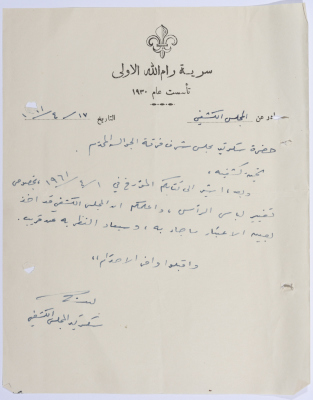 سرية رام الله الاولى
تأسست عام ١٩٣٠
صادر عن المجلس الكشفي التاريخ ١٧ / ٤ / ١٩٦١
حضرة سكرتير مجلس شرف فرقة الجوالة المحترم
تحية كشفية،
وبعد، اشير الى كتابكم المؤرخ في ١ / ٤ / ١٩٦١ بخصوص
تغيير لباس الرأس، واعلمكم ان المجلس الكشفي قد اخذ
بعين الاعتبار ما جاء به، وسيعاد النظر به عن قريب.
واقبلوا وافر الاحترام،،
سكرتير المجلس الكشفي